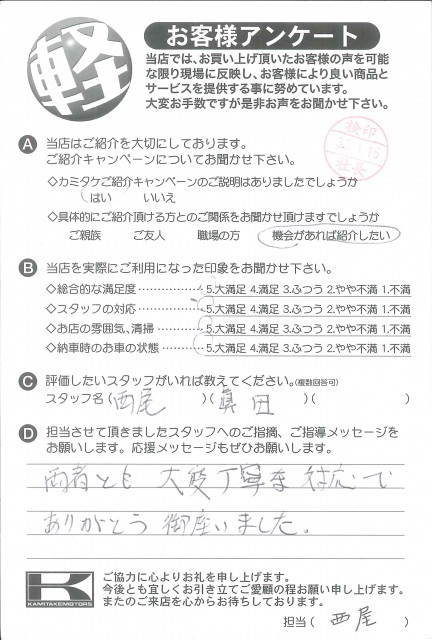 軽
お客様アンケート
当店では、お買い上げ頂いたお客様の声を可能
な限り現場に反映し、お客様により良い商品と
サービスを提供する事に努めています。
大変お手数ですが是非お声をお聞かせ下さい。
検印
社長
A 当店はご紹介を大切にしております。
ご紹介キャンペーンについてお聞かせ下さい。
◇カミタケご紹介キャンペーンのご説明はありましたでしょうか
はい いいえ
◇具体的にご紹介頂ける方とのご関係をお聞かせ頂けますでしょうか
ご親族 ご友人 職場の方 機会があれば紹介したい
B 当店を実際にご利用になった印象をお聞かせ下さい。
◇総合的な満足度……………… 5.大満足 4.満足 3.ふつう 2.やや不満 1.不満
◇スタッフの対応……………… 5.大満足 4.満足 3.ふつう 2.やや不満 1.不満
◇お店の雰囲気、清掃………… 5.大満足 4.満足 3.ふつう 2.やや不満 1.不満
◇納車時のお車の状態………… 5.大満足 4.満足 3.ふつう 2.やや不満 1.不満
C 評価したいスタッフがいれば教えてください。(複数回答可)
スタッフ名( 西尾 )( 眞田 )( )
D 担当させて頂きましたスタッフへのご指摘、ご指導メッセージを
お願いします。応援メッセージもぜひお願いします。
両者とも 大変丁寧な対応で
ありがとう御座いました。
K
KAMITAKEMOTORS
ご協力に心よりお礼を申し上げます。
今後とも宜しくお引き立てご愛顧の程お願い申し上げます。
またのご来店を心からお待ちしております。
担当( 西尾 )